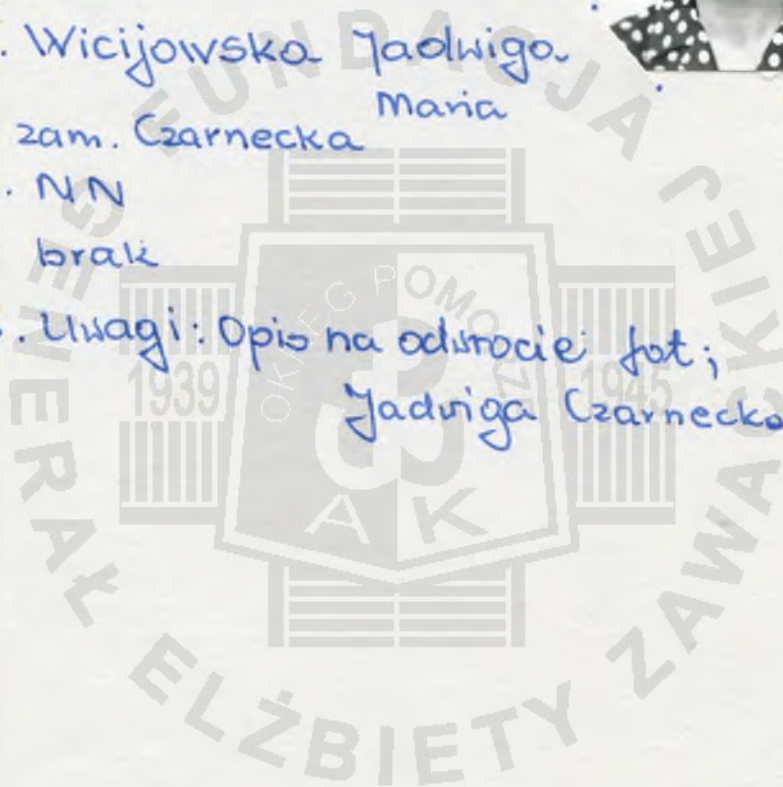 . Wicijowska Jadwiga
Maria
zam. Czarnecka
. NN
brak
. Uwagi: Opis na odwrocie fot;
Jadwiga Czarnecka
FUNDACJA GENERAŁ ELŻBIETY ZAWACKIEJ
OKRĘG POMORZE
1939
1945
AK